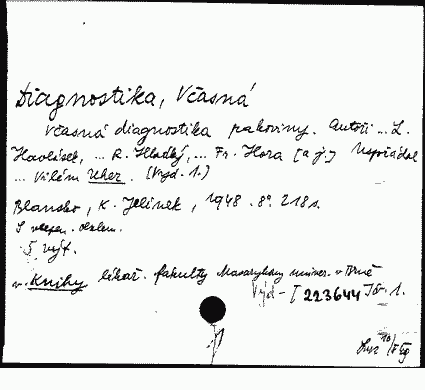 Diagnostika, Včasná
Včasná diagnostika rakoviny. Autoři ... L.
Havlásek, ... R. Hladký, ... Fr. Hora [a j.] Uspořádal
... Vilém Uher. (Vyd. 1.)
Blansko, K. Jelínek, 1948. 8°. 218 s.
S
5 výt.
v. Knihy lékař. fakulty Masarykovy univer. v Brně
Výd - [223644 1.